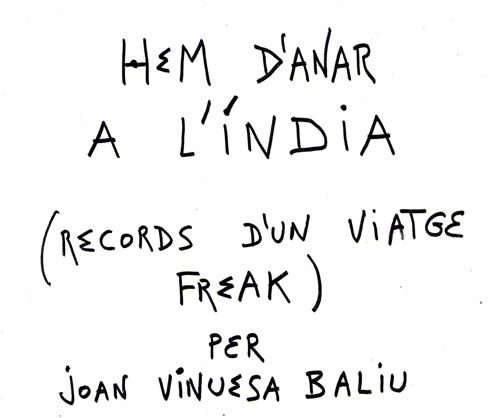 HEM D'ANAR
A L'ÍNDiA
(RECORDS D'UN ViATGE
FREAK)
PER
JOAN ViNUESA BALiU